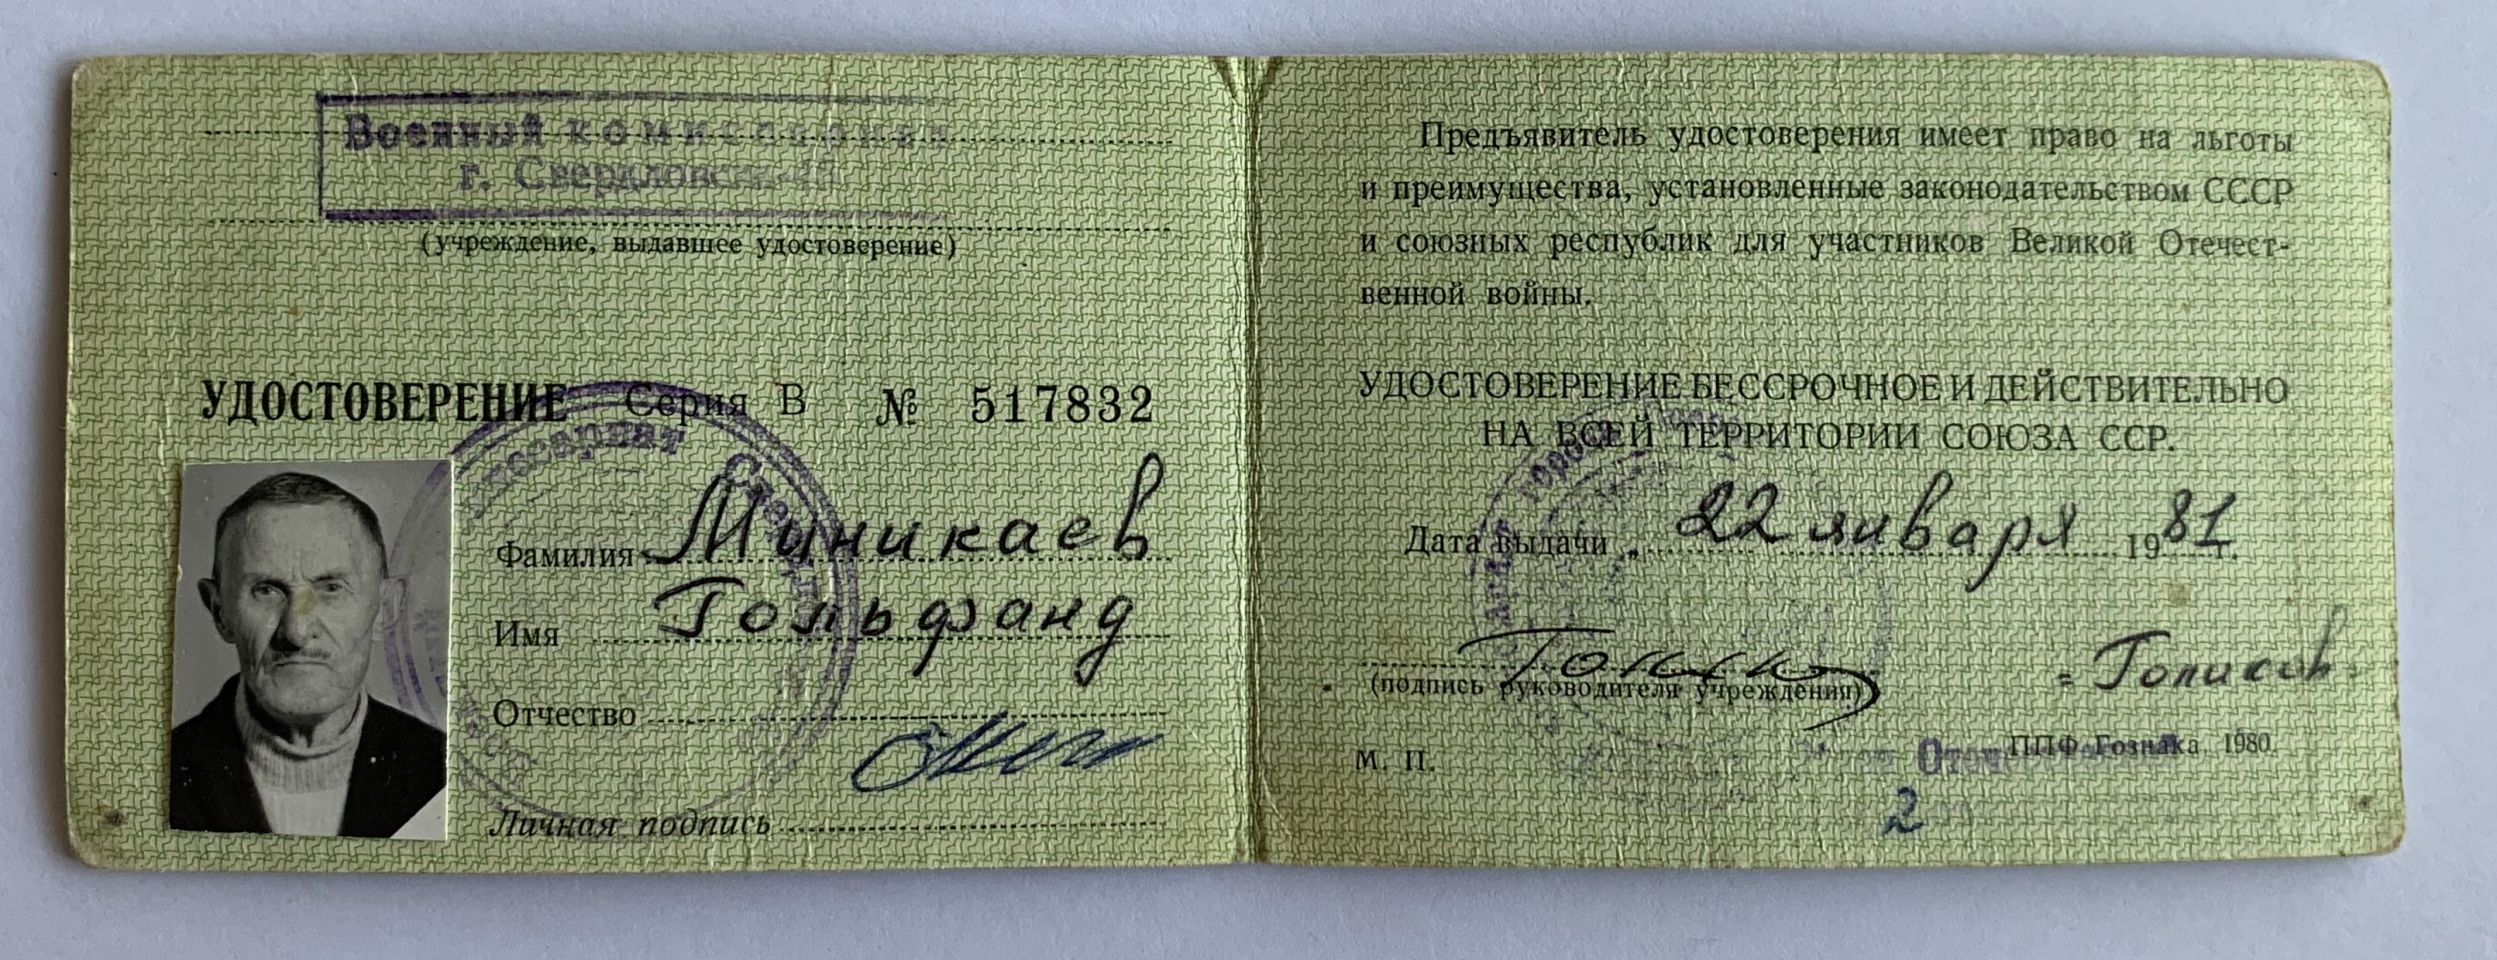 Военный комиссариат
г. Свердловска-45
(учреждение, выдавшее удостоверение)
УДОСТОВЕРЕНИЕ Серия В № 517832
Фамилия Миникаев
Имя Гольфанд
Отчество
Личная подпись
Предъявитель удостоверения имеет право на льготы
и преимущества, установленные законодательством СССР
и союзных республик для участников Великой Отечест-
венной войны.
УДОСТОВЕРЕНИЕ БЕССРОЧНОЕ И ДЕЙСТВИТЕЛЬНО
НА ВСЕЙ ТЕРРИТОРИИ СОЮЗА ССР.
Дата выдачи „ 22 января 1981 г.
(подпись руководителя учреждения)
М. П.
ППФ Гознака 1980
2